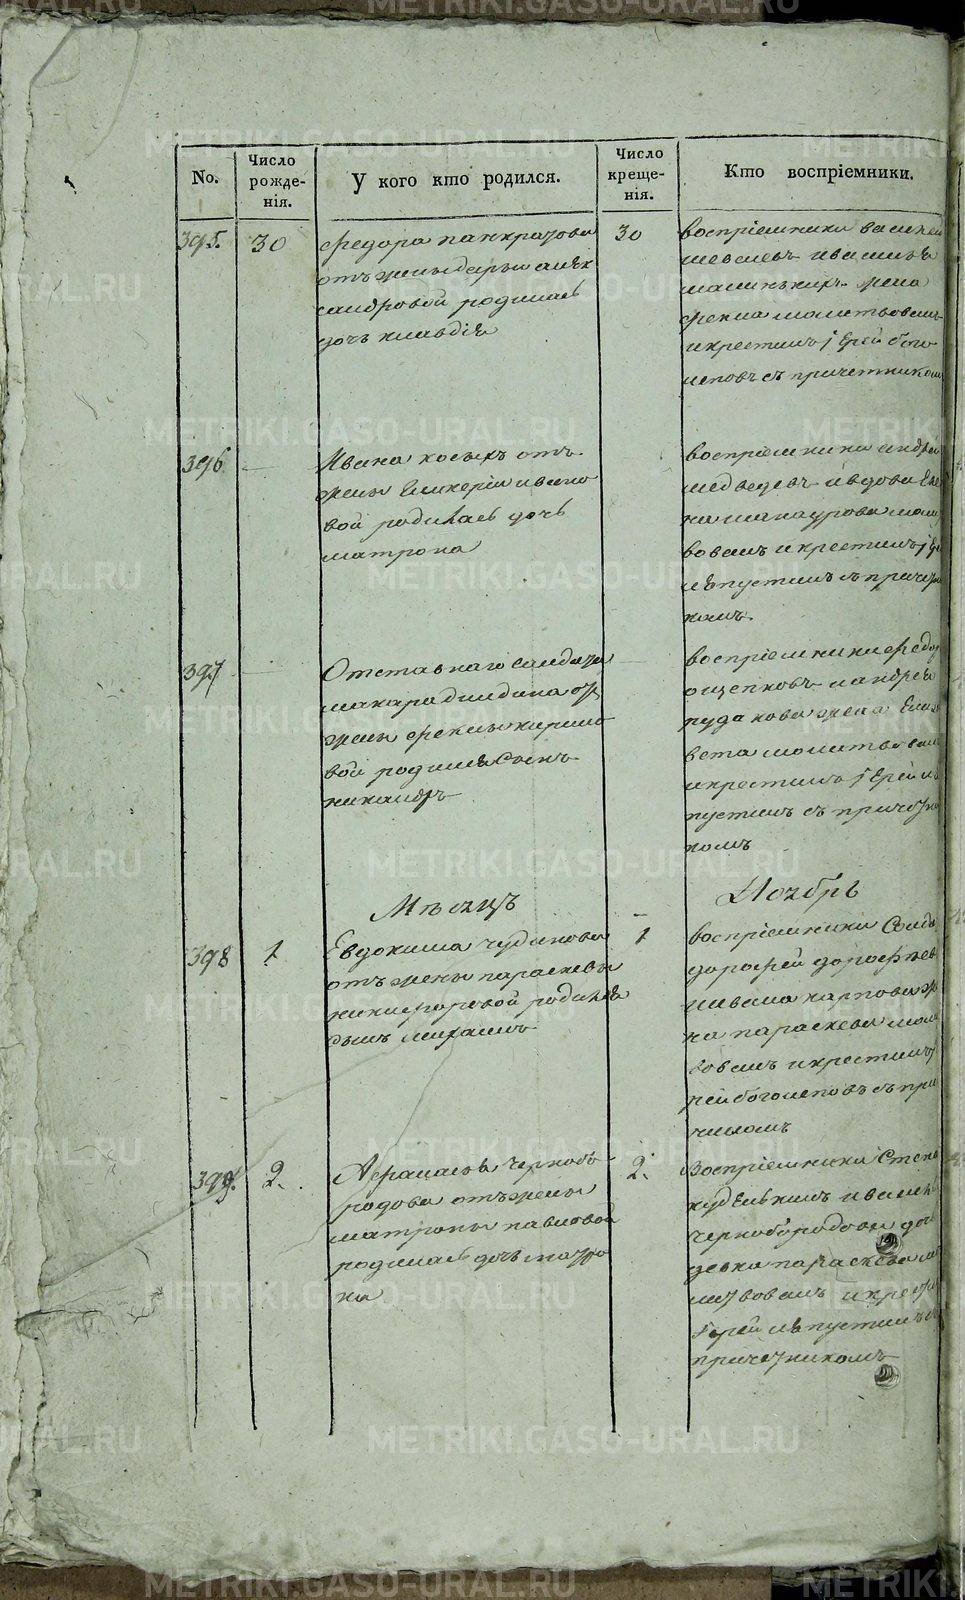 No.
Число рожде-нія.
У кого кто родился.
Число креще-нія.
Кто воспріемники.
395.
30
Федора панкратова
отъ жены дарьи алек
сандровой родилась
дочь клавдія
30
воспріемники василей
жена
фекла молитвовалъ
и крестилъ іерей бого
леповъ съ причетникомъ
396
Ивана косыхъ отъ
жены Гликеріи ивано
вой родилась дочь
матрона
воспріемники андрей
медведевъ и вдова Еле
на мол
вовалъ и крестилъ іер
съ причетни
комъ
397
Отставнаго салдата
макара дилдина от
жены феклы кирило
вой родился Сынъ
никандръ
воспріемники федор
ощепковъ и андрея
рудакова жена Елиза
вета молитвовалъ
и крестилъ іерей
съ причетни
комъ
Мѣсяцъ
Ноябрь
398
1
Евдокима чудинова
отъ жены параскевы
никифоровой родился
сынъ михаилъ
1
воспріемники Салд
дорофей дорофѣев
ивана карпова же
на параскева мол
вовалъ и крестилъ
рей боголеповъ съ при
чномъ
399.
2.
Афанасья чернобо
родова отъ жены
матроны павловой
родилась дочь матро
на
2.
Воспріемники Степа
чернобородова до
девка параскева
твовалъ и крести
Іерей
причетникомъ
METRIKI.GASO-URAL.RU